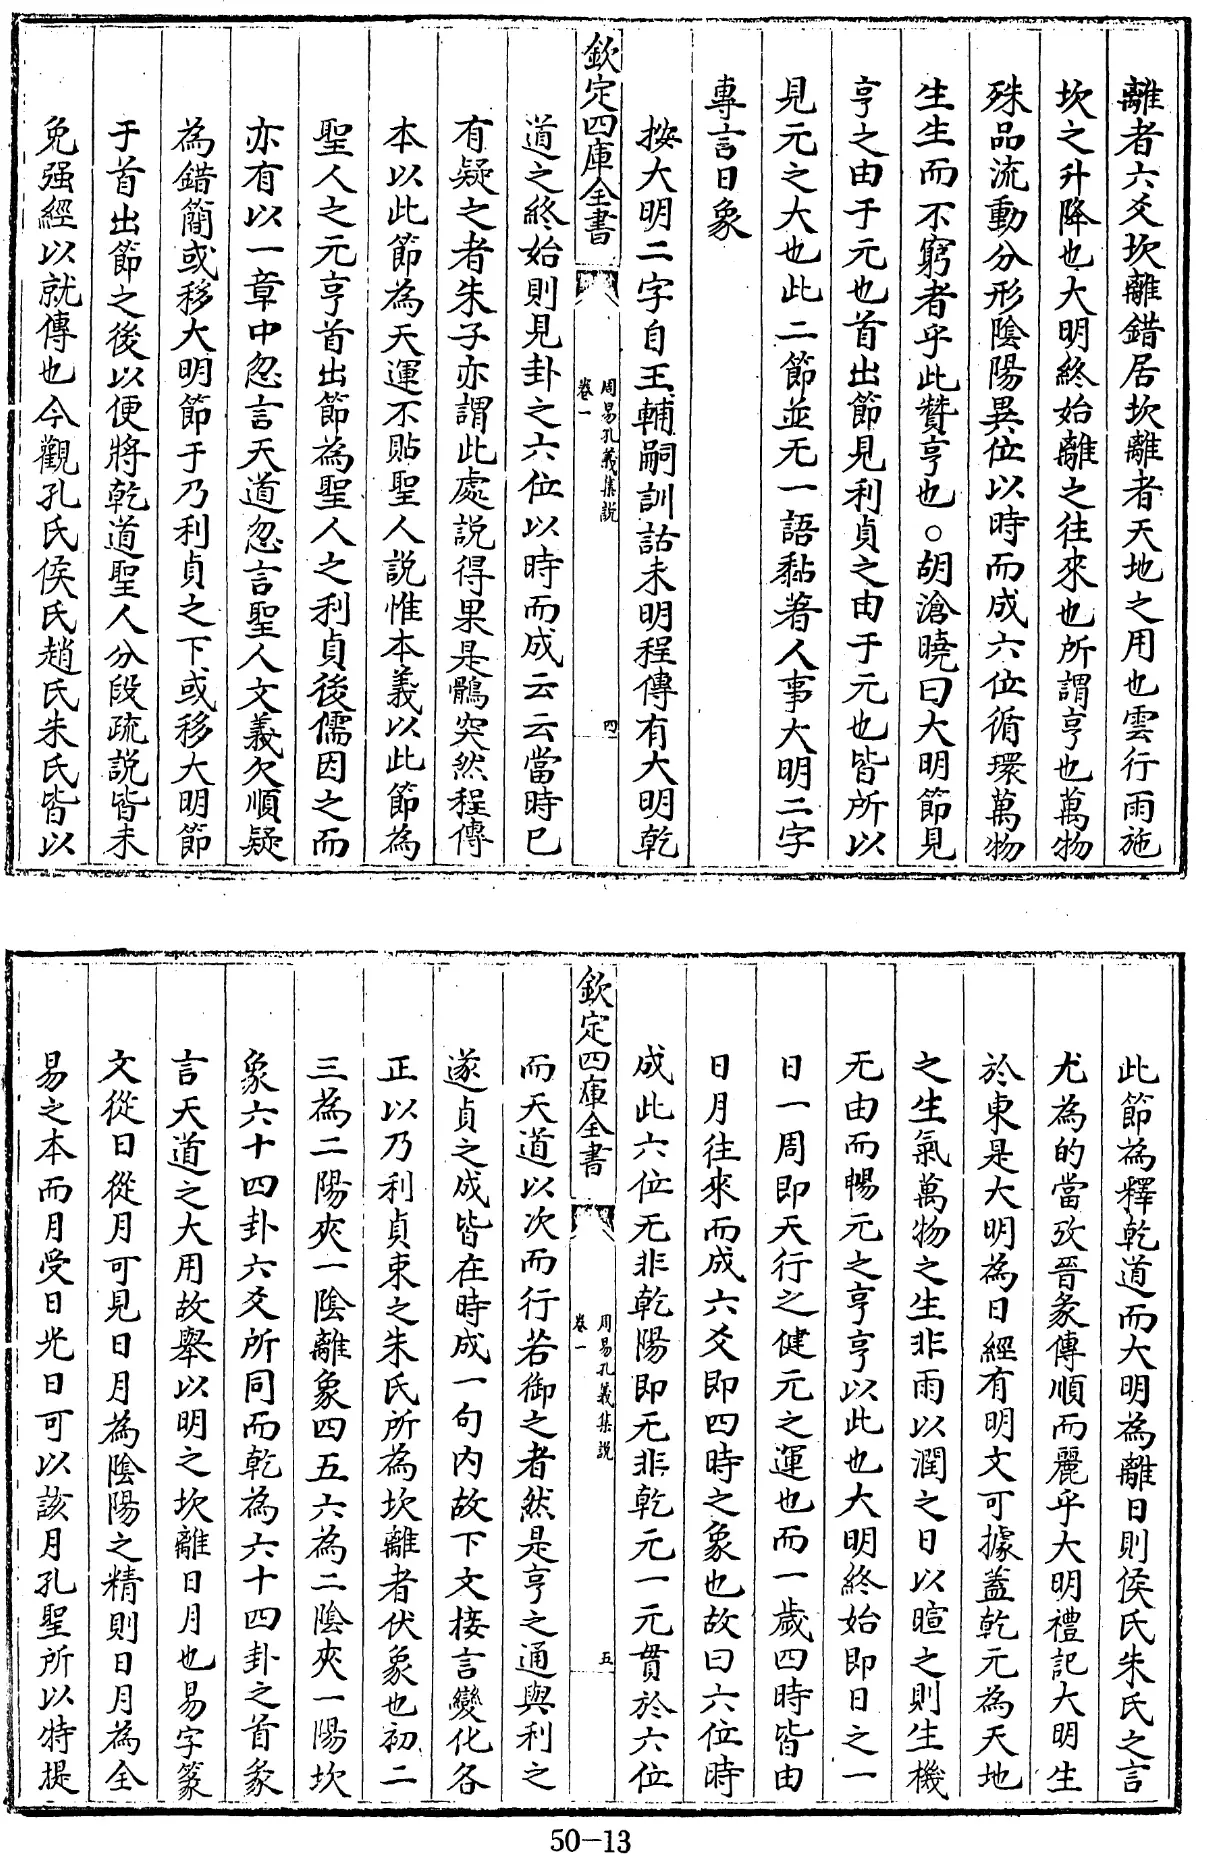 離者六爻坎離錯居坎離者天地之用也雲行雨施
坎之升降也大明終始離之往來也所謂亨也萬物
殊品流動分形陰陽異位以時而成六位循環萬物
生生而不窮者乎此贊亨也○胡滄曉曰大明節見
亨之由于元也首出節見利貞之由于元也皆所以
見元之大也此二節並无一語黏著人事大明二字
專言日象
按大明二字自王輔嗣訓詁未明程傳有大明乾
欽定四庫全書
周易孔義集說
卷一
四
道之終始則見卦之六位以時而成云云當時已
有疑之者朱子亦謂此處說得果是鶻突然程傳
本以此節為天運不貼聖人說惟本義以此節為
聖人之元亨首出節為聖人之利貞後儒因之而
亦有以一章中忽言天道忽言聖人文義欠順疑
為錯簡或移大明節于乃利貞之下或移大明節
于首出節之後以便將乾道聖人分段疏說皆未
免强經以就傳也今觀孔氏侯氏趙氏朱氏皆以
此節為釋乾道而大明為離日則侯氏朱氏之言
尤為的當攷晉彖傳順而麗乎大明禮記大明生
於東是大明為日經有明文可據蓋乾元為天地
之生氣萬物之生非雨以潤之日以暄之則生機
无由而暢元之亨亨以此也大明終始即日之一
日一周即天行之健元之運也而一歲四時皆由
日月往來而成六爻即四時之象也故曰六位時
成此六位无非乾陽即无非乾元一元貫於六位
欽定四庫全書
周易孔義集說
卷一
五
而天道以次而行若御之者然是亨之通與利之
遂貞之成皆在時成一句內故下文接言變化各
正以乃利貞束之朱氏所為坎離者伏象也初二
三為二陽夾一陰離象四五六為二陰夾一陽坎
象六十四卦六爻所同而乾為六十四卦之首彖
言天道之大用故舉以明之坎離日月也易字篆
文從日從月可見日月為陰陽之精則日月為全
易之本而月受日光日可以該月孔聖所以特提
50-13